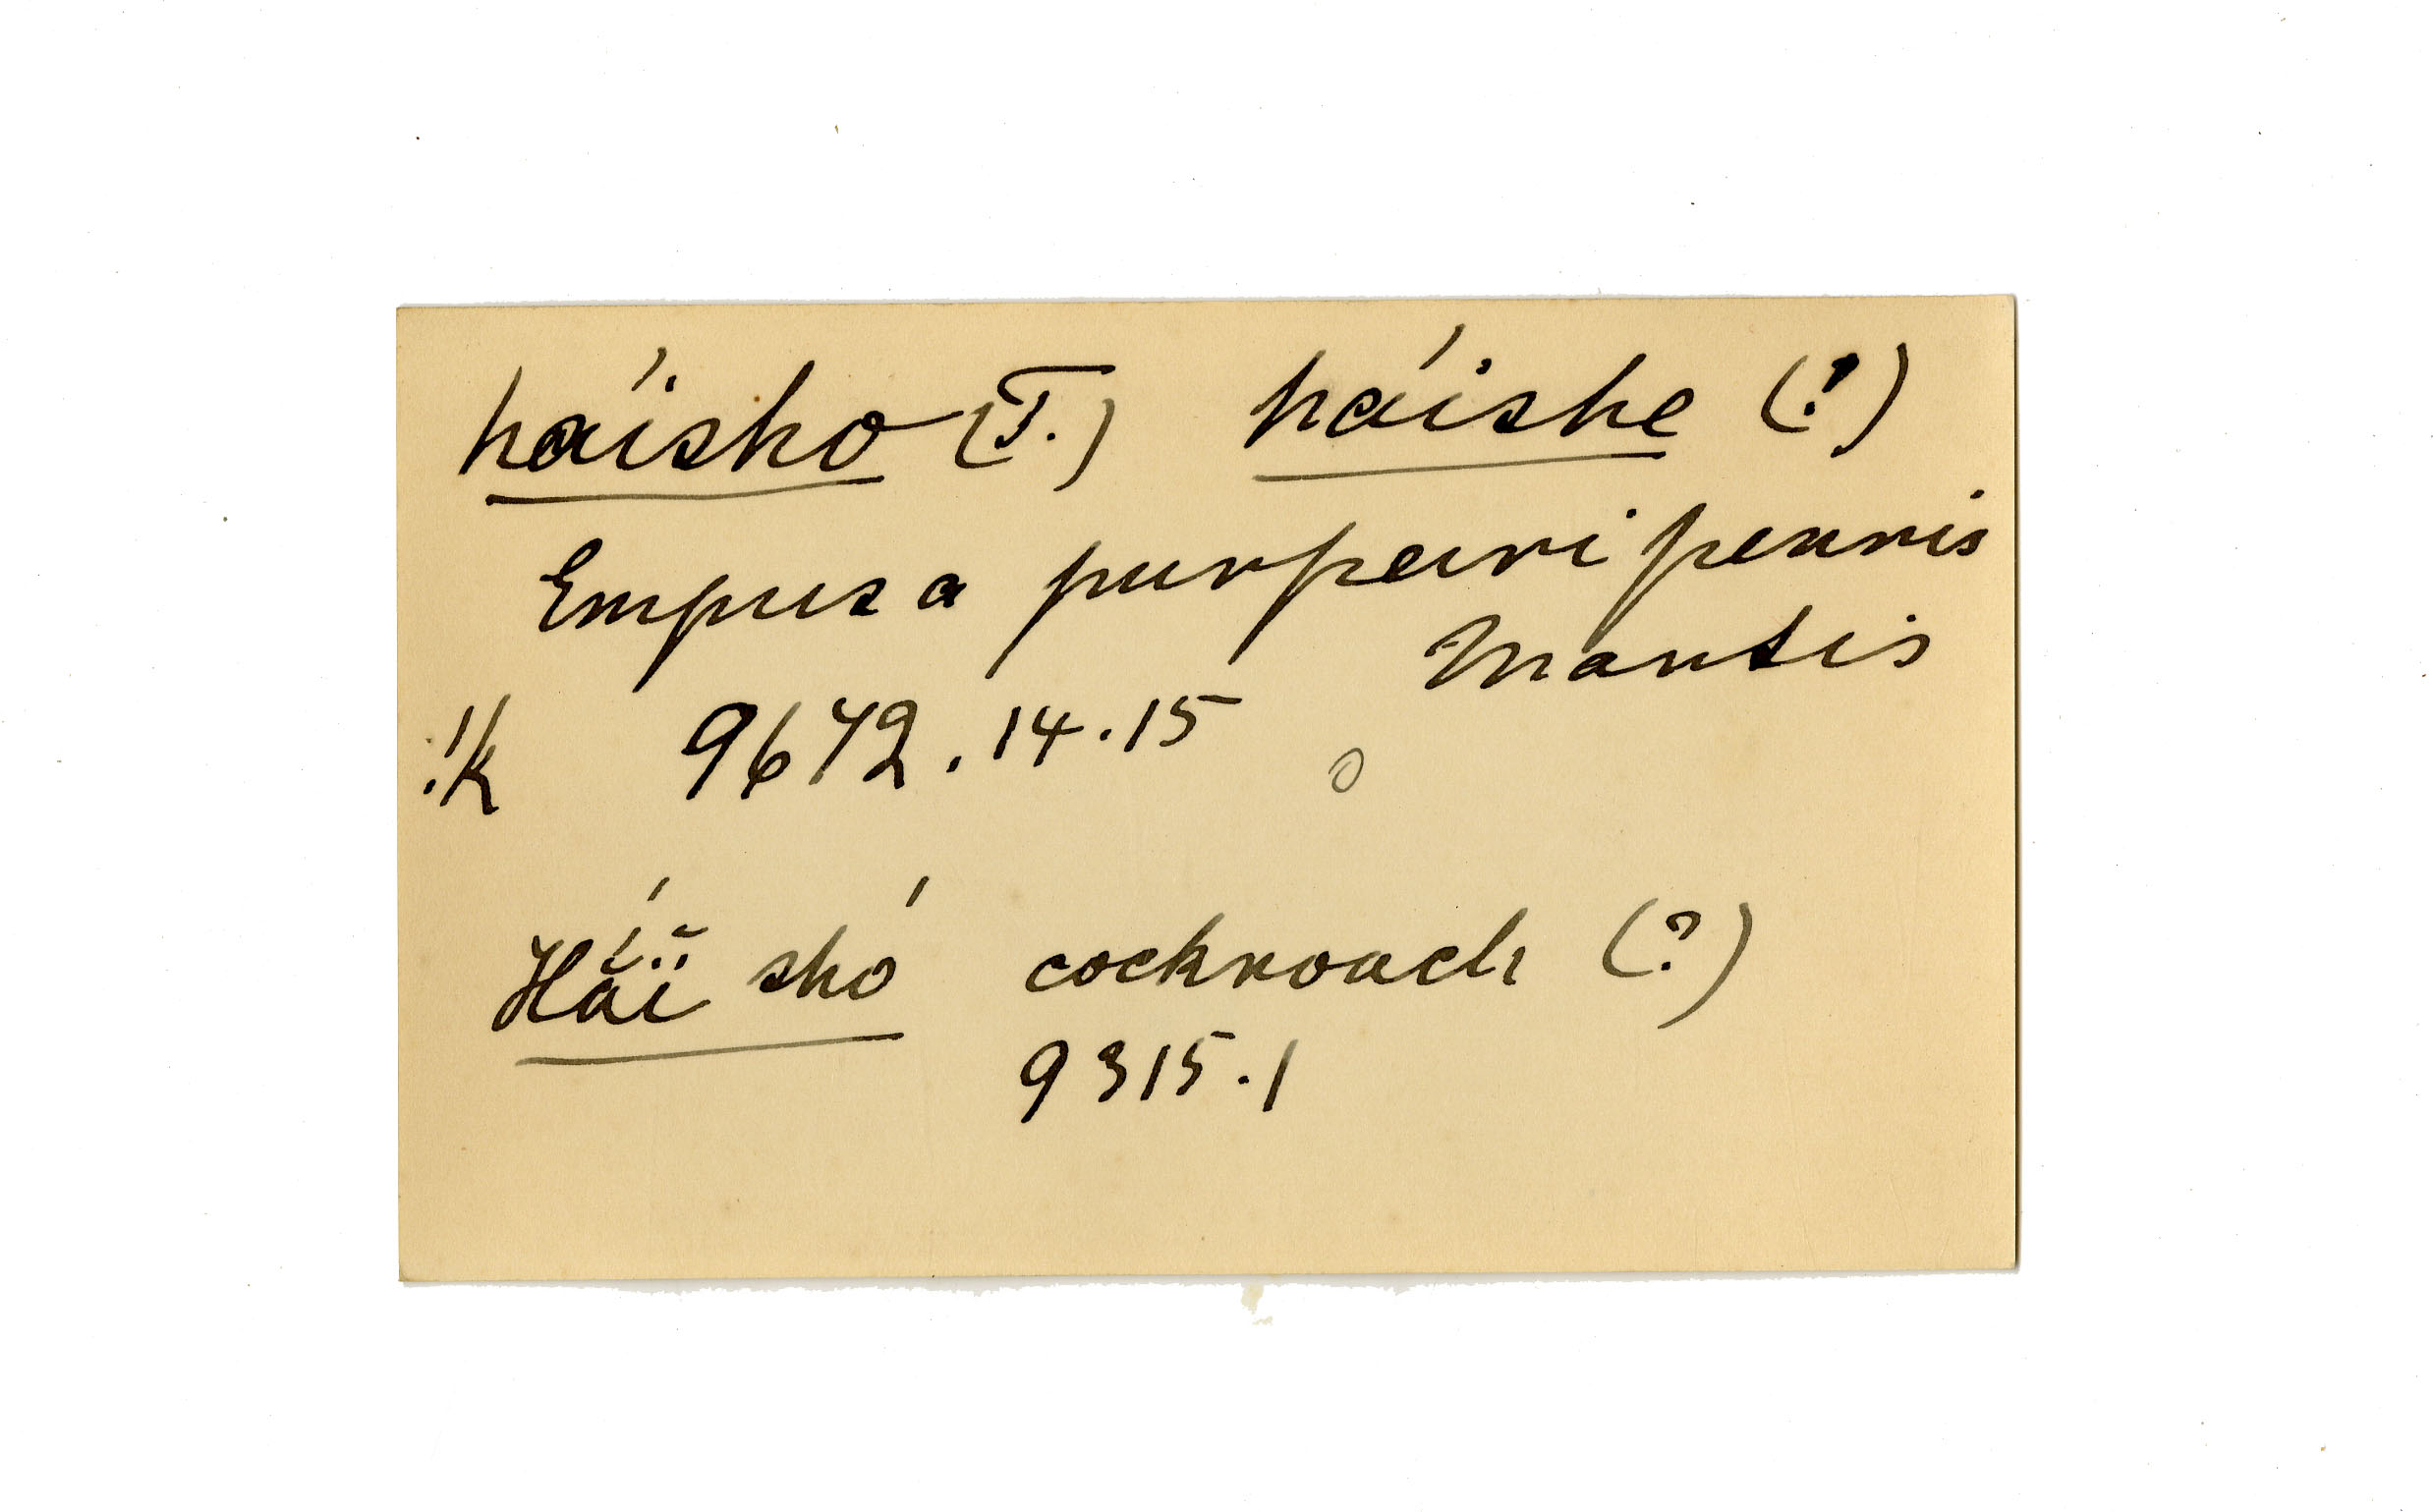 háisho (T.) háishe (?)
Empusa purpuripennis
Mantis
!k 9672.14.15
Hắǐ shó cockroach (?)
9315.1